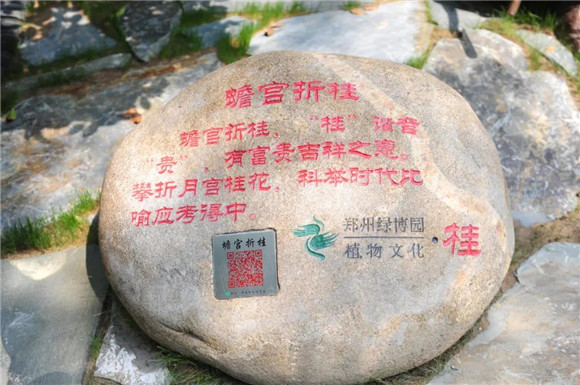 蟾宫折桂
蟾宫折桂，“桂”谐音
“贵”，有富贵吉祥之意。
攀折月宫桂花，科举时代比
喻应考得中。
蟾宫折桂
郑州绿博园
植物文化·桂